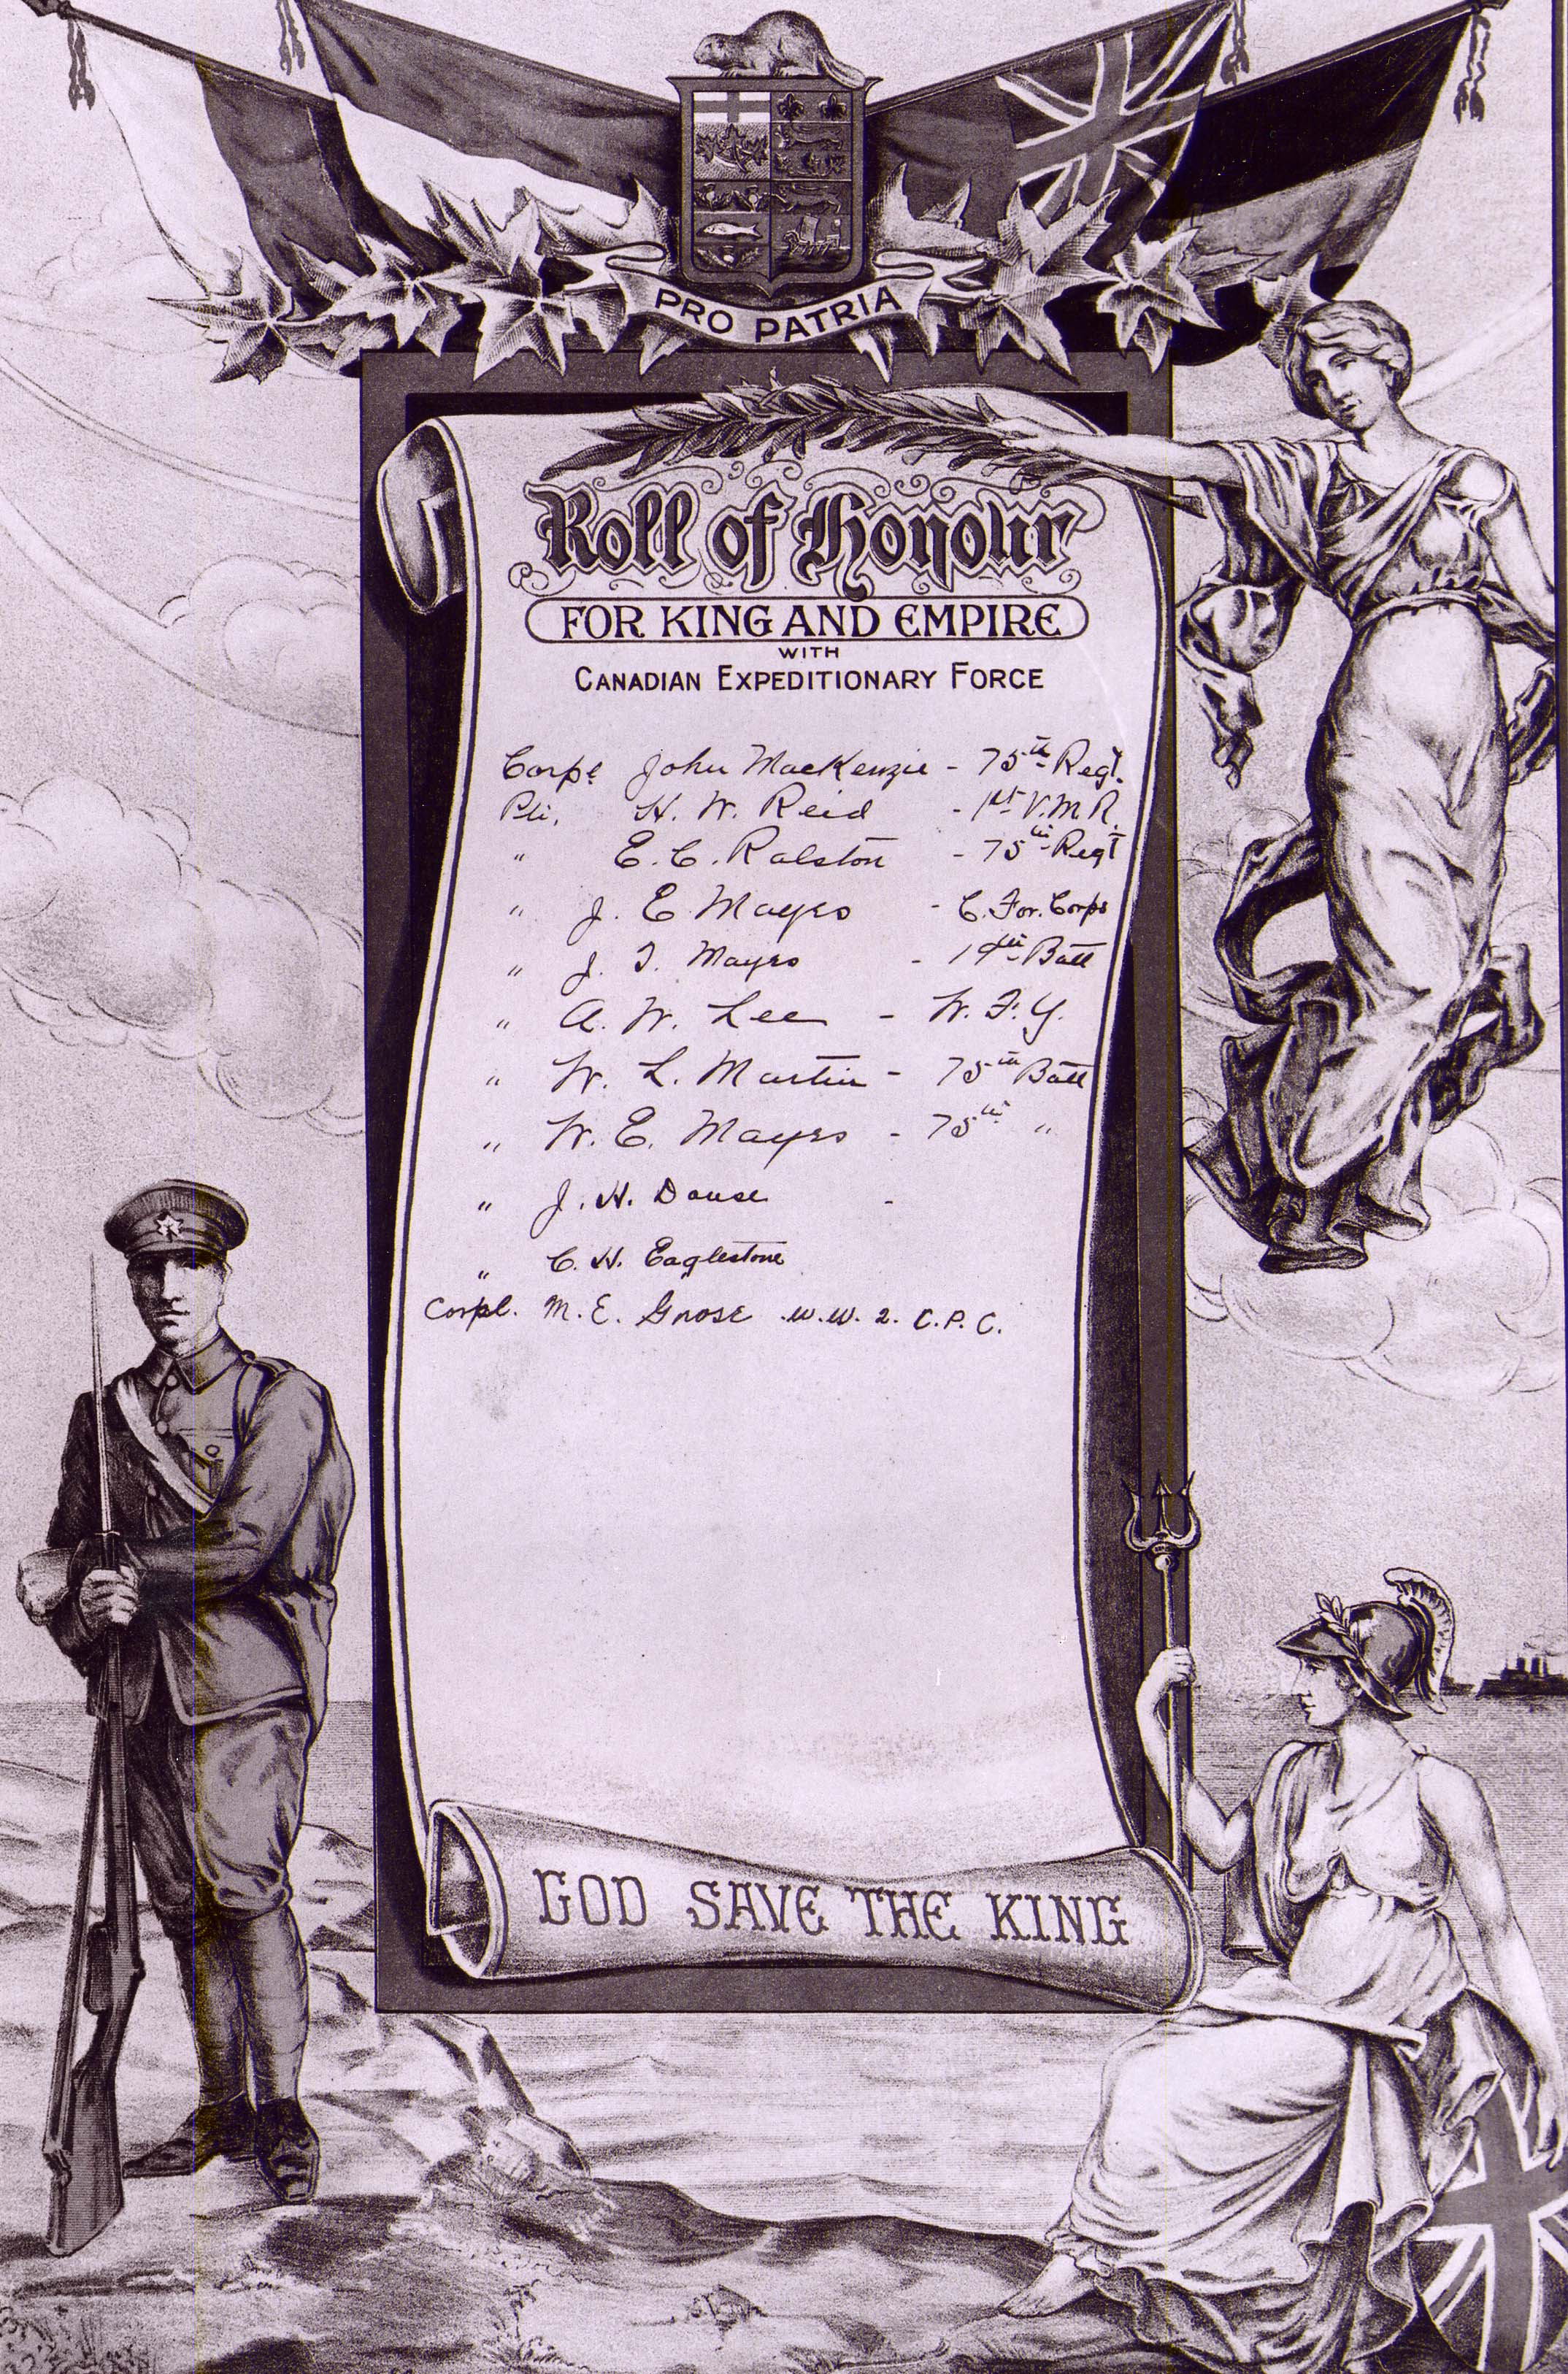 PRO PATRIA
Roll of Honour
FOR KING AND EMPIRE
WITH
CANADIAN EXPEDITIONARY FORCE
Corpl John MacKenzie - 75th Regt.
Pte. H. W. Reid - 1st V.M.R.
" E. C. Ralston - 75th Regt
" J. E. Mayes - C. For. Corps
" J. T. Mayes - Batt
" A. W. Lee - W. F. Y.
" W. L. Martin - 75th Batt
" W. E. Mayes - 75th "
" J. H. Dause -
" C. H. Eaglestone
Corpl. M. E. Grose W.W. 2. C.P.C.
GOD SAVE THE KING